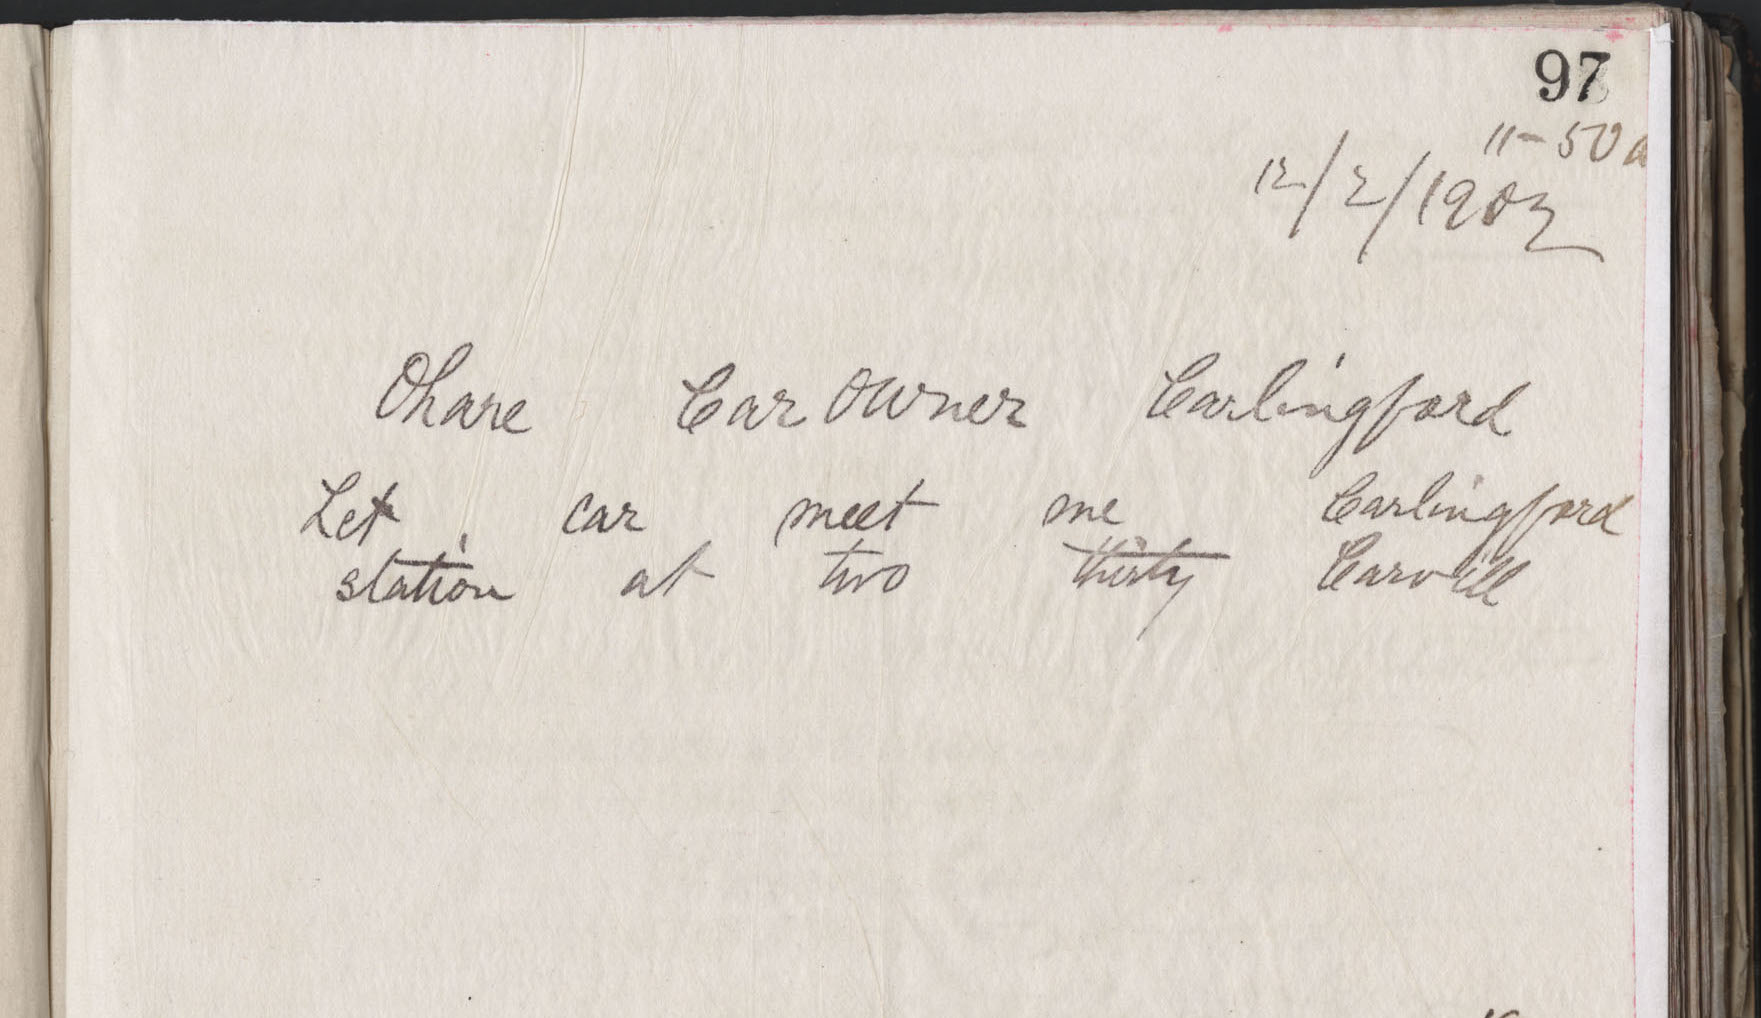 97
11-50 a
12/2/1902
Ohare Car Owner Carlingford
Let car meet me Carlingford
station at two thirty Carvill